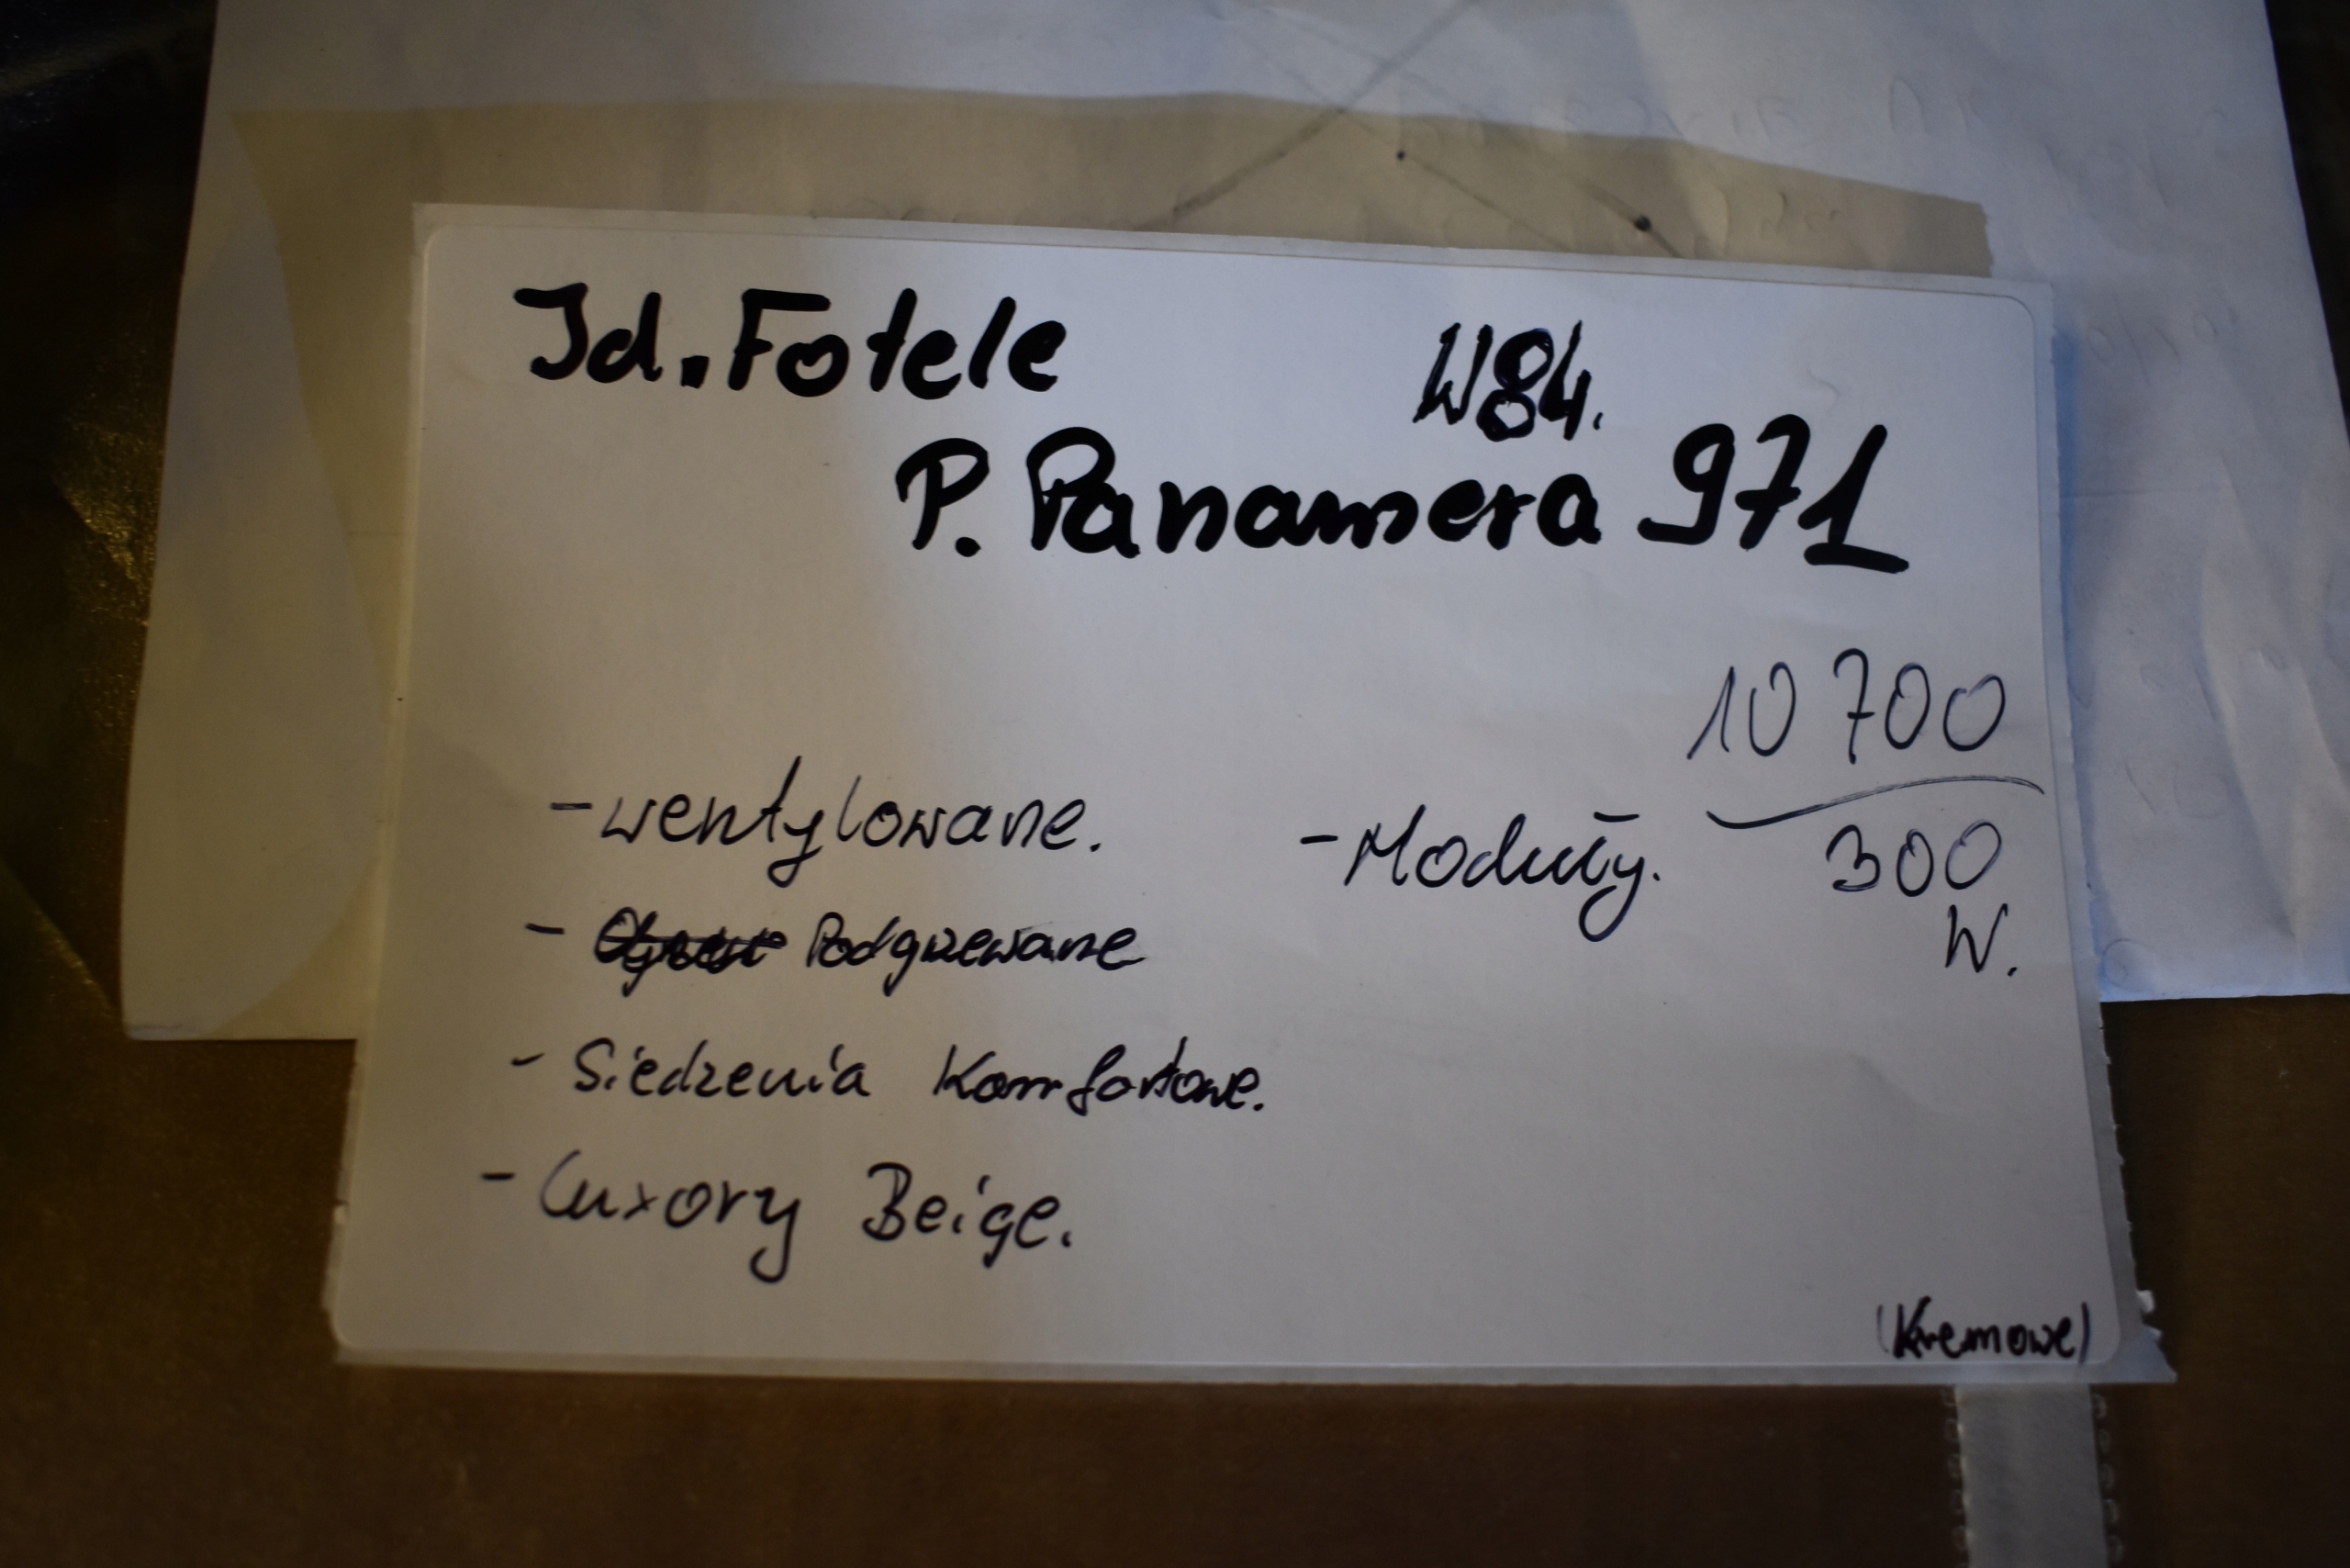 Jd. Fotele
W84.
P. Panamera 971
10 700
300
W.
- wentylowane.
- Moduły.
- Podgrzewane
- Siedzenia Komfortowe.
- Luxory Beige.
(Kremowe)